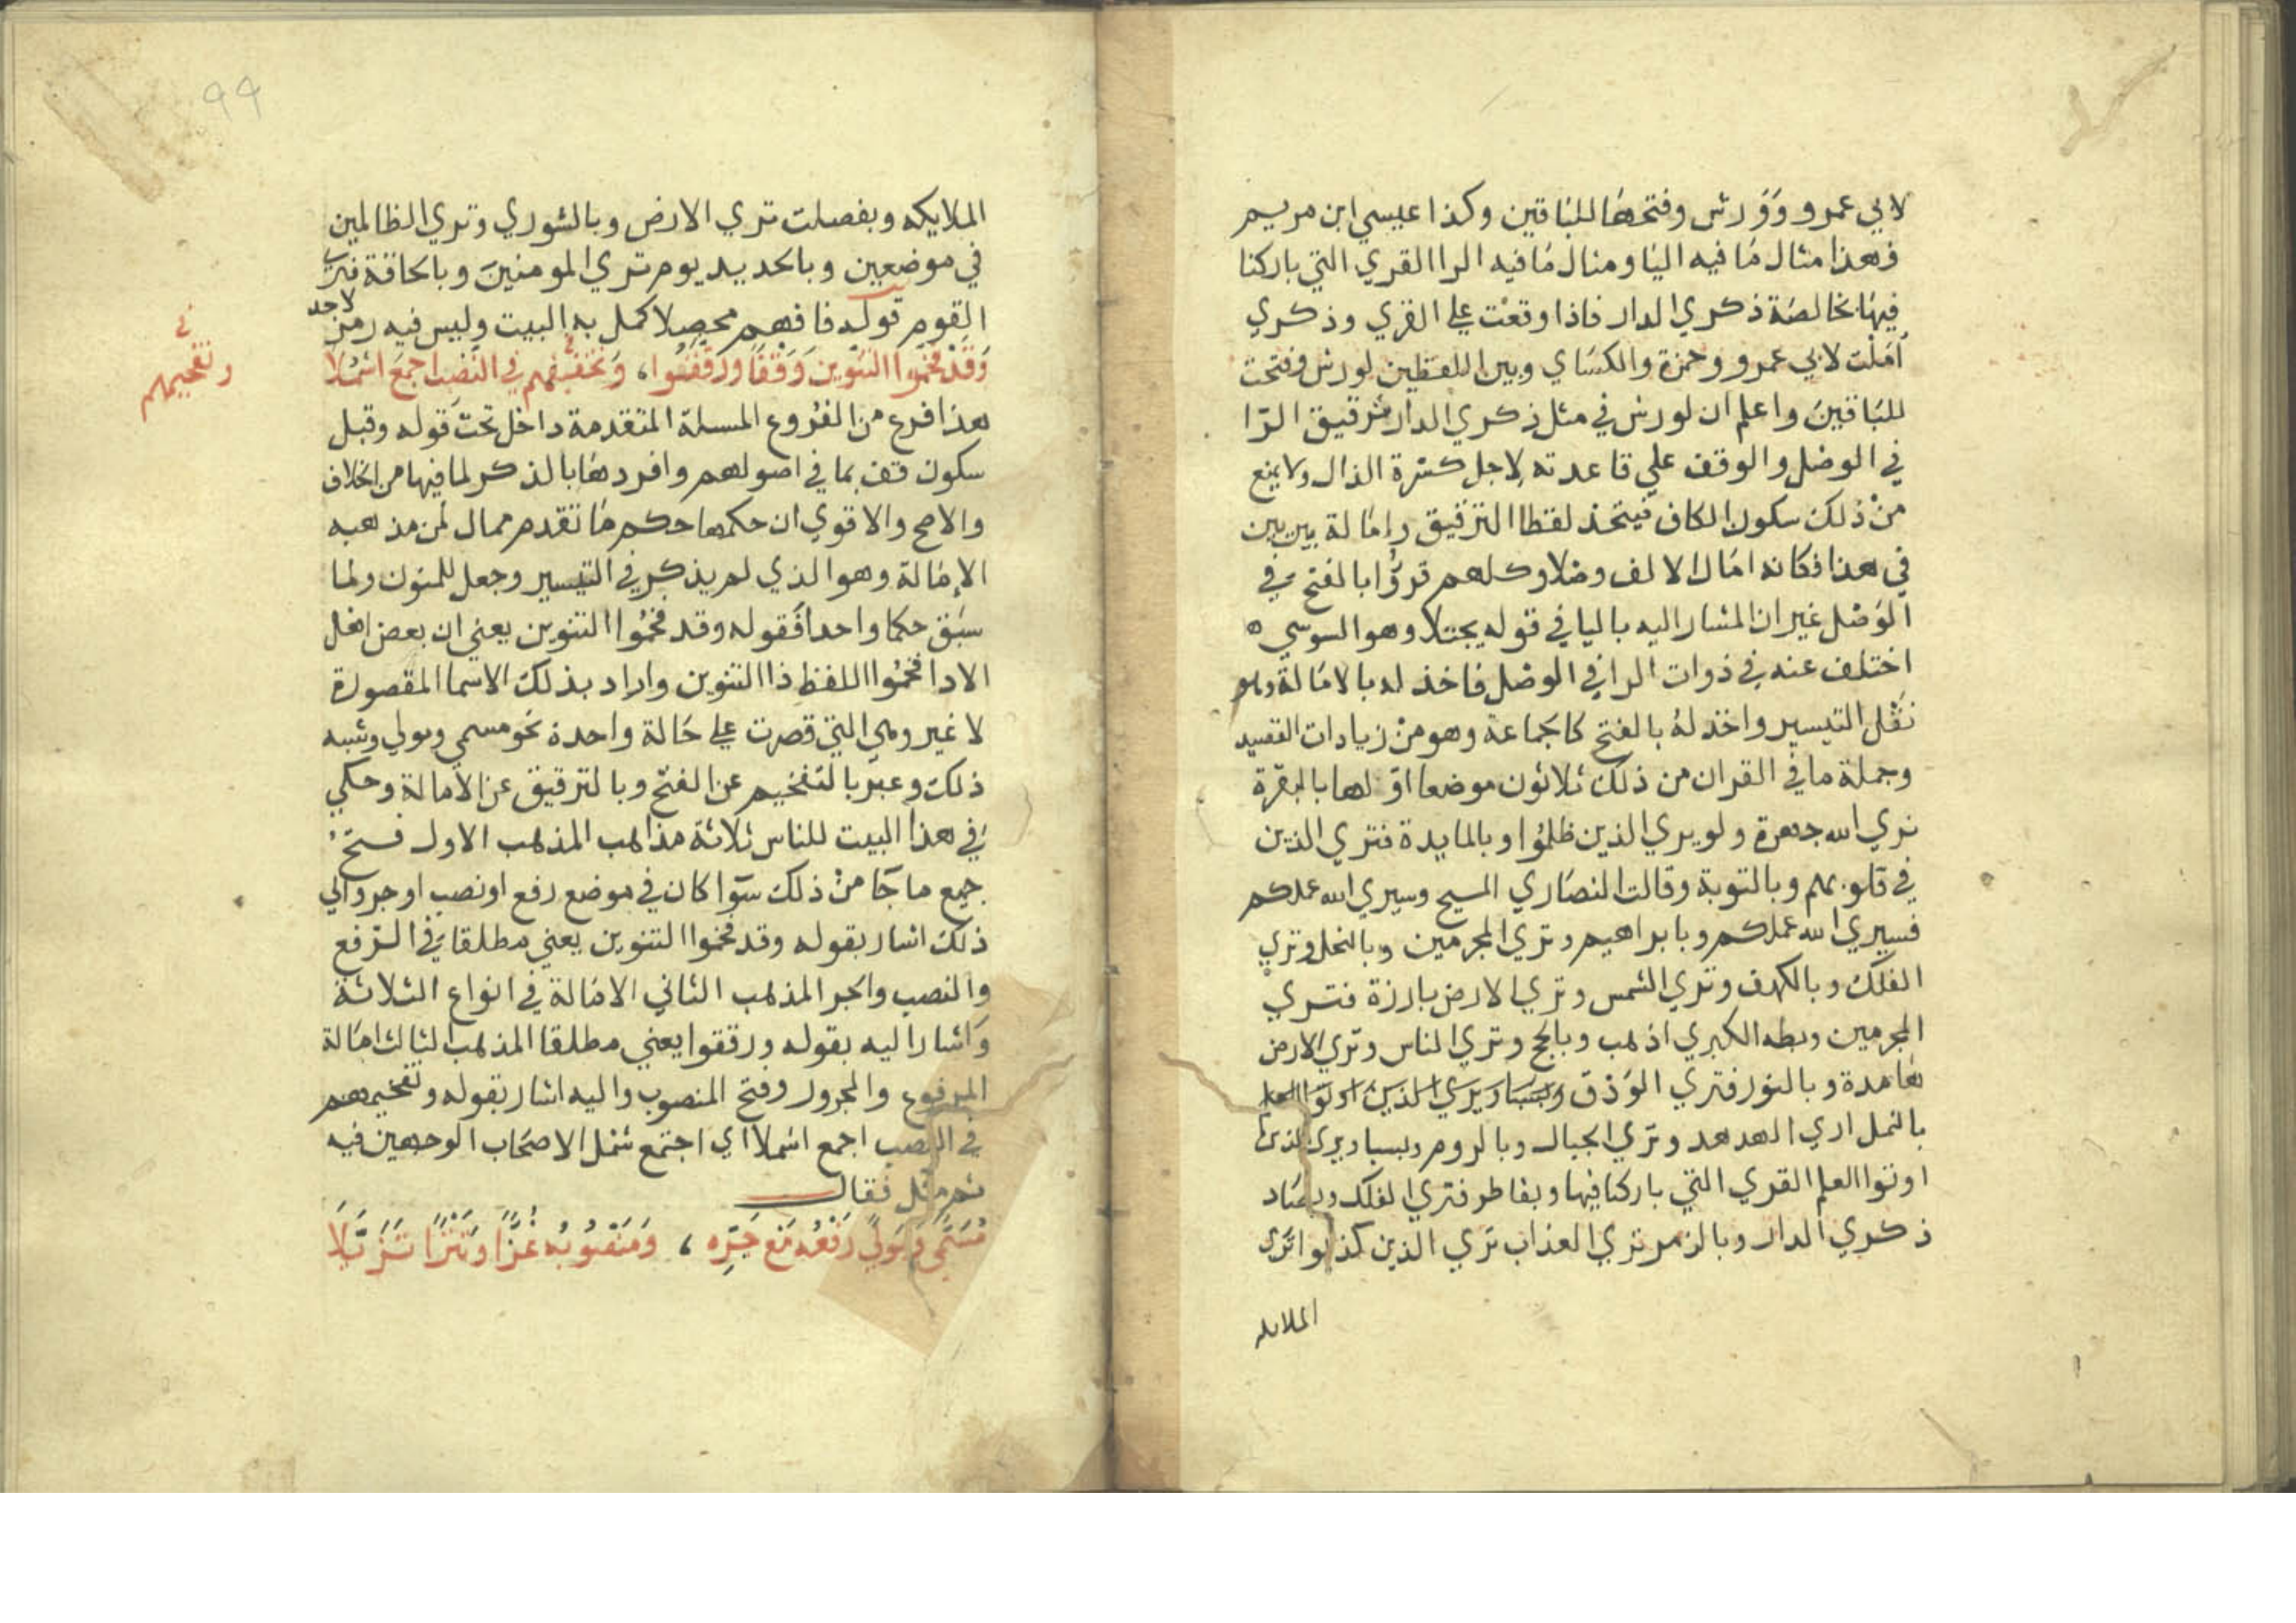 لابي عمرو وَوَرش وفتحها للباقين وكذا عيسي ابن مريم
فهذا مثال ما فيه اليا ومثال ما فيه الرا القري التي باركنا
فيها بخالصة ذكري الدار فاذا وقعْت علي القري وذكري
اَمَلْت لابي عمرو وحمزة والكساي وبين اللفظين لورش وفتحت
للباقينَ واعلم ان لورش في مثل ذكري الدار ترقيق الرّا
في الوصْل والوقف علي قاعدته لاجل كسرة الذال ولا يمنع
منْ ذلك سكون الكاف فيتحد لفظا الترقيق وامالة بين بين
في هذا فكانه امَال الالف وصْلا وكلهم قرؤا بالفتح في
الوَصْل غير ان المشار اليه باليا في قوله يجتلا وهو السوسي ه
اختلف عنه في ذوات الرا في الوصْل فاخذ له بالامَالة وهو
نقْل التيسير واخذ لهُ بالفتح كالجماعة وهو منْ زيادات القصيد
وجملة ما في القران من ذلك ثلاثون موضعا اوّلها بالبقرة
نري الله جهرة ولو يري الذين ظلمُوا وبالمايدة فتري الذين
في قلوبهم وبالتوبة وقالت النصَاري المسيح وسيري الله عملكم
فسيري الله عملكم وبابراهيم وتري المجرمين وبالنحل وتري
الفلك وبالكهف وتري الشمس وتري الارض بارزة فتري
المجرمين وبطه الكبري اذهب وبالحج وتري الناس وتري الارض
هَامدة وبالنور فتري الوَدْق وبسبا ويري الذين اوتوا العلم
بالنمل اري الهدهد وتري الجبال وبالروم وبسبا ويري الذين
اوتوا العلم القري التي باركنا فيها وبفاطر فتري الفلك وبصَاد
ذكري الدار وبالزمر تري العذاب تري الذين كذبوا تري
الملايكه
٩٩
الملايكه وبفصلت تري الارض وبالشوري وتري الظالمين
في موضعين وبالحديد يوم تري المومنينَ وبالحاقة فتري
القوم قوله فافهم محصِلا كمل به البيت وليس فيه رمز لاحد
وَقَدْ فخمُوا التنوين وَقفًا ورققُوا، وَتفخيمهم في النّصب اجمعَ اشمُلا
وتفخيمهم في
هذا فرع من الفرُوع المسلة المتقدمة داخل تحتَ قوله وقبل
سكون قف بما في اصولهم وافردهَا بالذكر لما فيها من الخلاف
والاصح والاقوي ان حكمها حكم مَا تقدم ممال لمن مذهبه
الإمَالة وهو الذي لم يذكر في التيسير وجعل للمنون ولما
سبَق حكما واحدا فقوله وقد فخمُوا التنوين يعني ان بعض اهل
الادا فخمُوا اللفظ ذا التنوين واراد بذلك الاسما المقصورة
لا غير وهي التي قصرت علي حَالة واحدة نحو مسمي ومولي وشبه
ذلك وعبّر بالتفخيم عن الفتح وبالترقيق عن الامالة وحكي
في هذا البيت للناس ثلاثة مذاهب المذهب الاول فتحُ
جميع ما جَا منْ ذلك سوَا كان في موضع رفع او نصب او جر والي
ذلك اشار بقوله وقد فخموا التنوين يعني مطلقا في الرّفع
والنصب والجر المذهب الثاني الامَالة في انواع الثلاثة
وَاشار اليه بقوله ورققوا يعني مطلقا المذهب الثالث امَالة
المرفوع والمجرور وفتح المنصوب واليه اشار بقوله وتفخيمهم
في النصب اجمع اشملا اي اجتمع شمْل الاصحَاب الوجهين فيه
ثم مثل فقال
مُسَمًّى ومَولًي رَفعُه مَع جَرّه، وَمَنصُوبُه غُزًّا وتَترًا تَزَيَّلَا